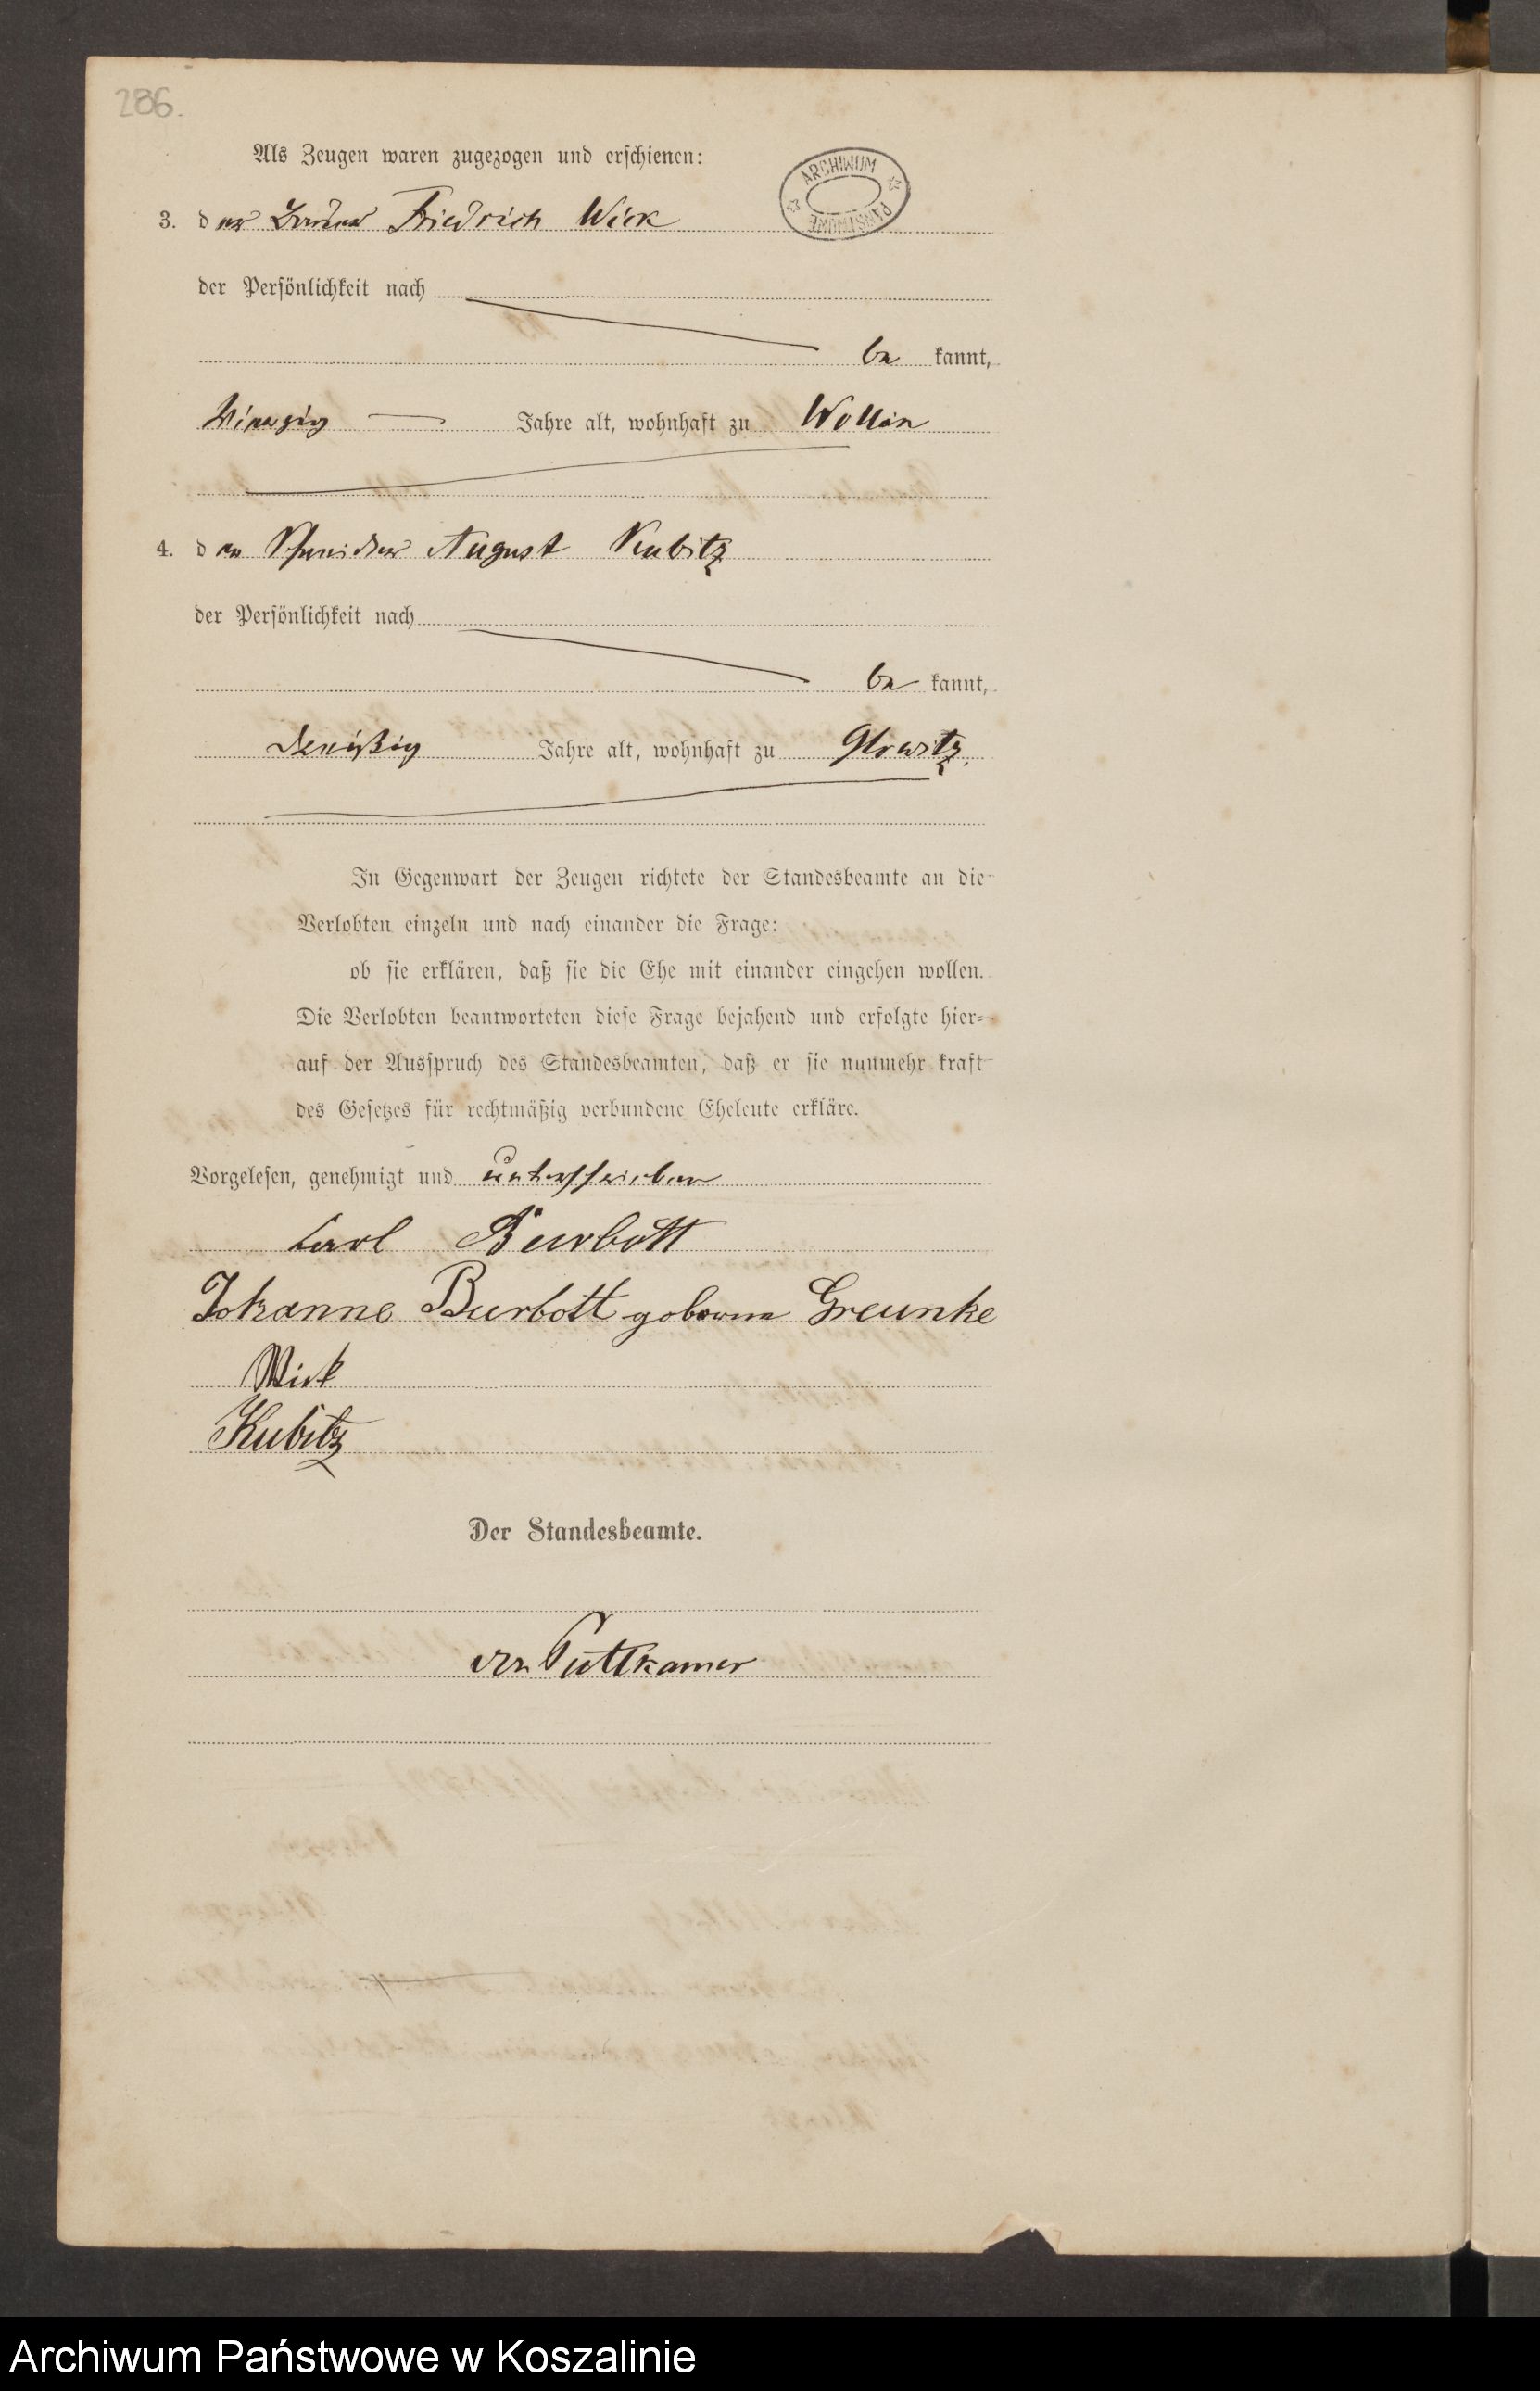 286.
Als Zeugen waren zugezogen und erschienen:
ARCHIWUM PAŃSTWOWE
3. der Friedrich Wick
der Persönlichkeit nach
be kannt,
Vierzig Jahre alt, wohnhaft zu Wollin
4. der Schneider August Kubitz
der Persönlichkeit nach
be kannt,
dreißig Jahre alt, wohnhaft zu Glowitz.
In Gegenwart der Zeugen richtete der Standesbeamte an die
Verlobten einzeln und nach einander die Frage:
ob sie erklären, daß sie die Ehe mit einander eingehen wollen.
Die Verlobten beantworteten diese Frage bejahend und erfolgte hier-
auf der Ausspruch des Standesbeamten, daß er sie nunmehr kraft
des Gesetzes für rechtmäßig verbundene Eheleute erkläre.
Vorgelesen, genehmigt und unterschrieben
Carl Burbott
Johanne Burbott geborene Greunke
Wick
Kubitz
Der Standesbeamte.
von Puttkamer
Archiwum Państwowe w Koszalinie